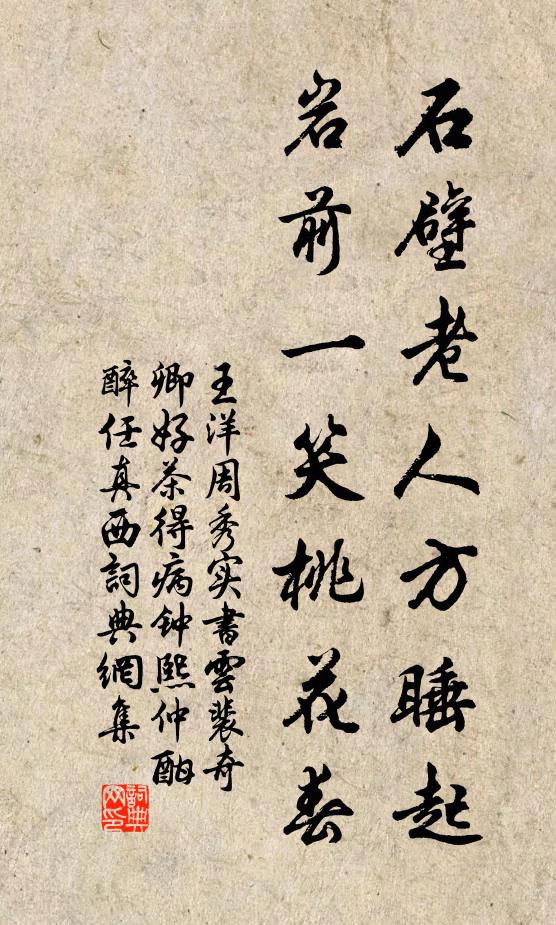 石壁老人方睡起
岩前一笑桃花春
王洋周秀实書雲裴奇
卿好茶得病钟熙仲酣
醉任真西詞典網集
詞典网印